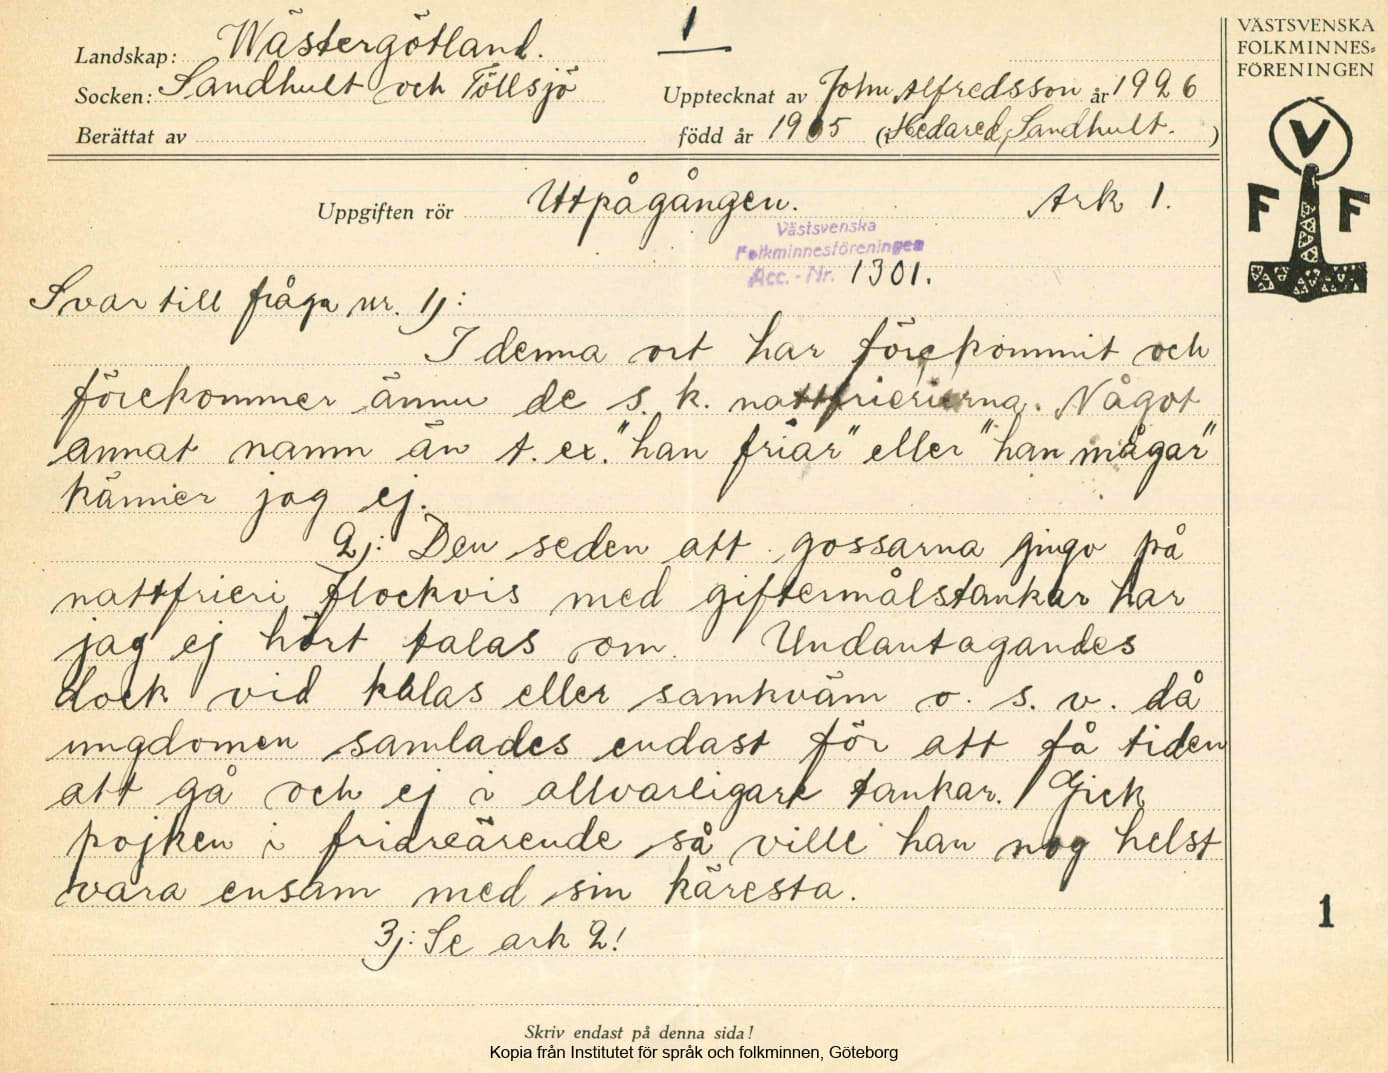 1
VÄSTSVENSKA
FOLKMINNES-
FÖRENINGEN
V
F F
Landskap: Wästergötland.
Socken: Sandhult och Töllsjö
Upptecknat av John Alfredsson år 1926
Berättat av
född år 1905 (i Hedared, Sandhult. )
Uppgiften rör Utpågången. Ark 1.
Västsvenska
Folkminnesföreningen
Acc. - Nr. 1301.
Svar till fråga nr. 1):
I denna ort har förekommit och
förekommer ännu de s. k. nattfrierierna. Något
annat namn än t. ex. "han friar" eller "han mågar"
känner jag ej.
2): Den seden att gossarna gingo på
nattfrieri flockvis med giftermålstankar har
jag ej hört talas om. Undantagandes
dock vid kalas eller samkväm o. s. v. då
ungdomen samlades endast för att få tiden
att gå och ej i allvarligare tankar. Gick
pojken i friareärende så ville han nog helst
vara ensam med sin käresta.
3): Se ark 2!
1
Skriv endast på denna sida!
Kopia från Institutet för språk och folkminnen, Göteborg